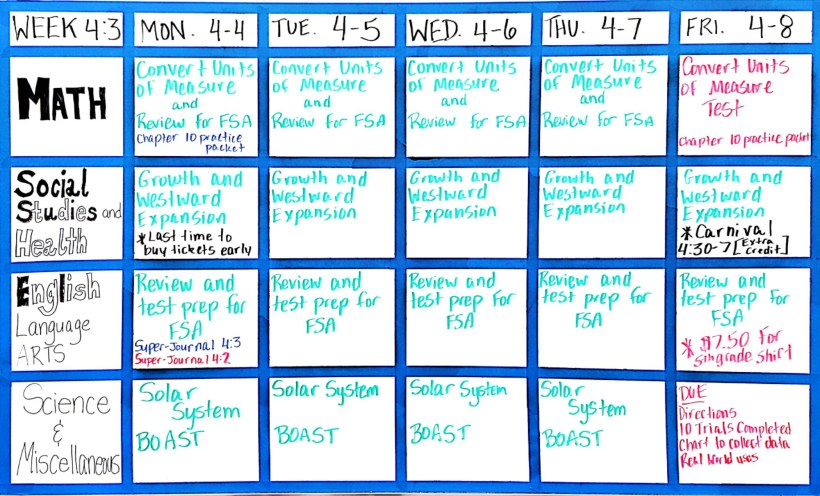 WEEK 4:3
MON. 4-4
TUE. 4-5
WED. 4-6
THU. 4-7
FRI. 4-8
MATH
Convert Units
of Measure
and
Review for FSA
Chapter 10 practice
packet
Convert Units
of Measure
and
Review for FSA
Convert Units
of Measure
and
Review for FSA
Convert Units
of Measure
and
Review for FSA
Convert Units
of Measure
Test
Chapter 10 practice packet
Social
Studies and
Health
Growth and
Westward
Expansion
*Last time to
buy tickets early
Growth and
Westward
Expansion
Growth and
Westward
Expansion
Growth and
Westward
Expansion
Growth and
Westward
Expansion
*Carnival
4:30-7 [Extra
Credit]
English
Language
ARTS
Review and
test prep for
FSA
Super-Journal 4:3
Super-Journal 4:2
Review and
test prep for
FSA
Review and
test prep for
FSA
Review and
test prep for
FSA
Review and
test prep for
FSA
* $7.50 for
5th grade shirt
Science
&
Miscellaneous
Solar
System
BOAST
Solar System
BOAST
Solar System
BOAST
Solar
System
BOAST
DUE
Directions
10 Trials Completed
Chart to collect data
Real World uses